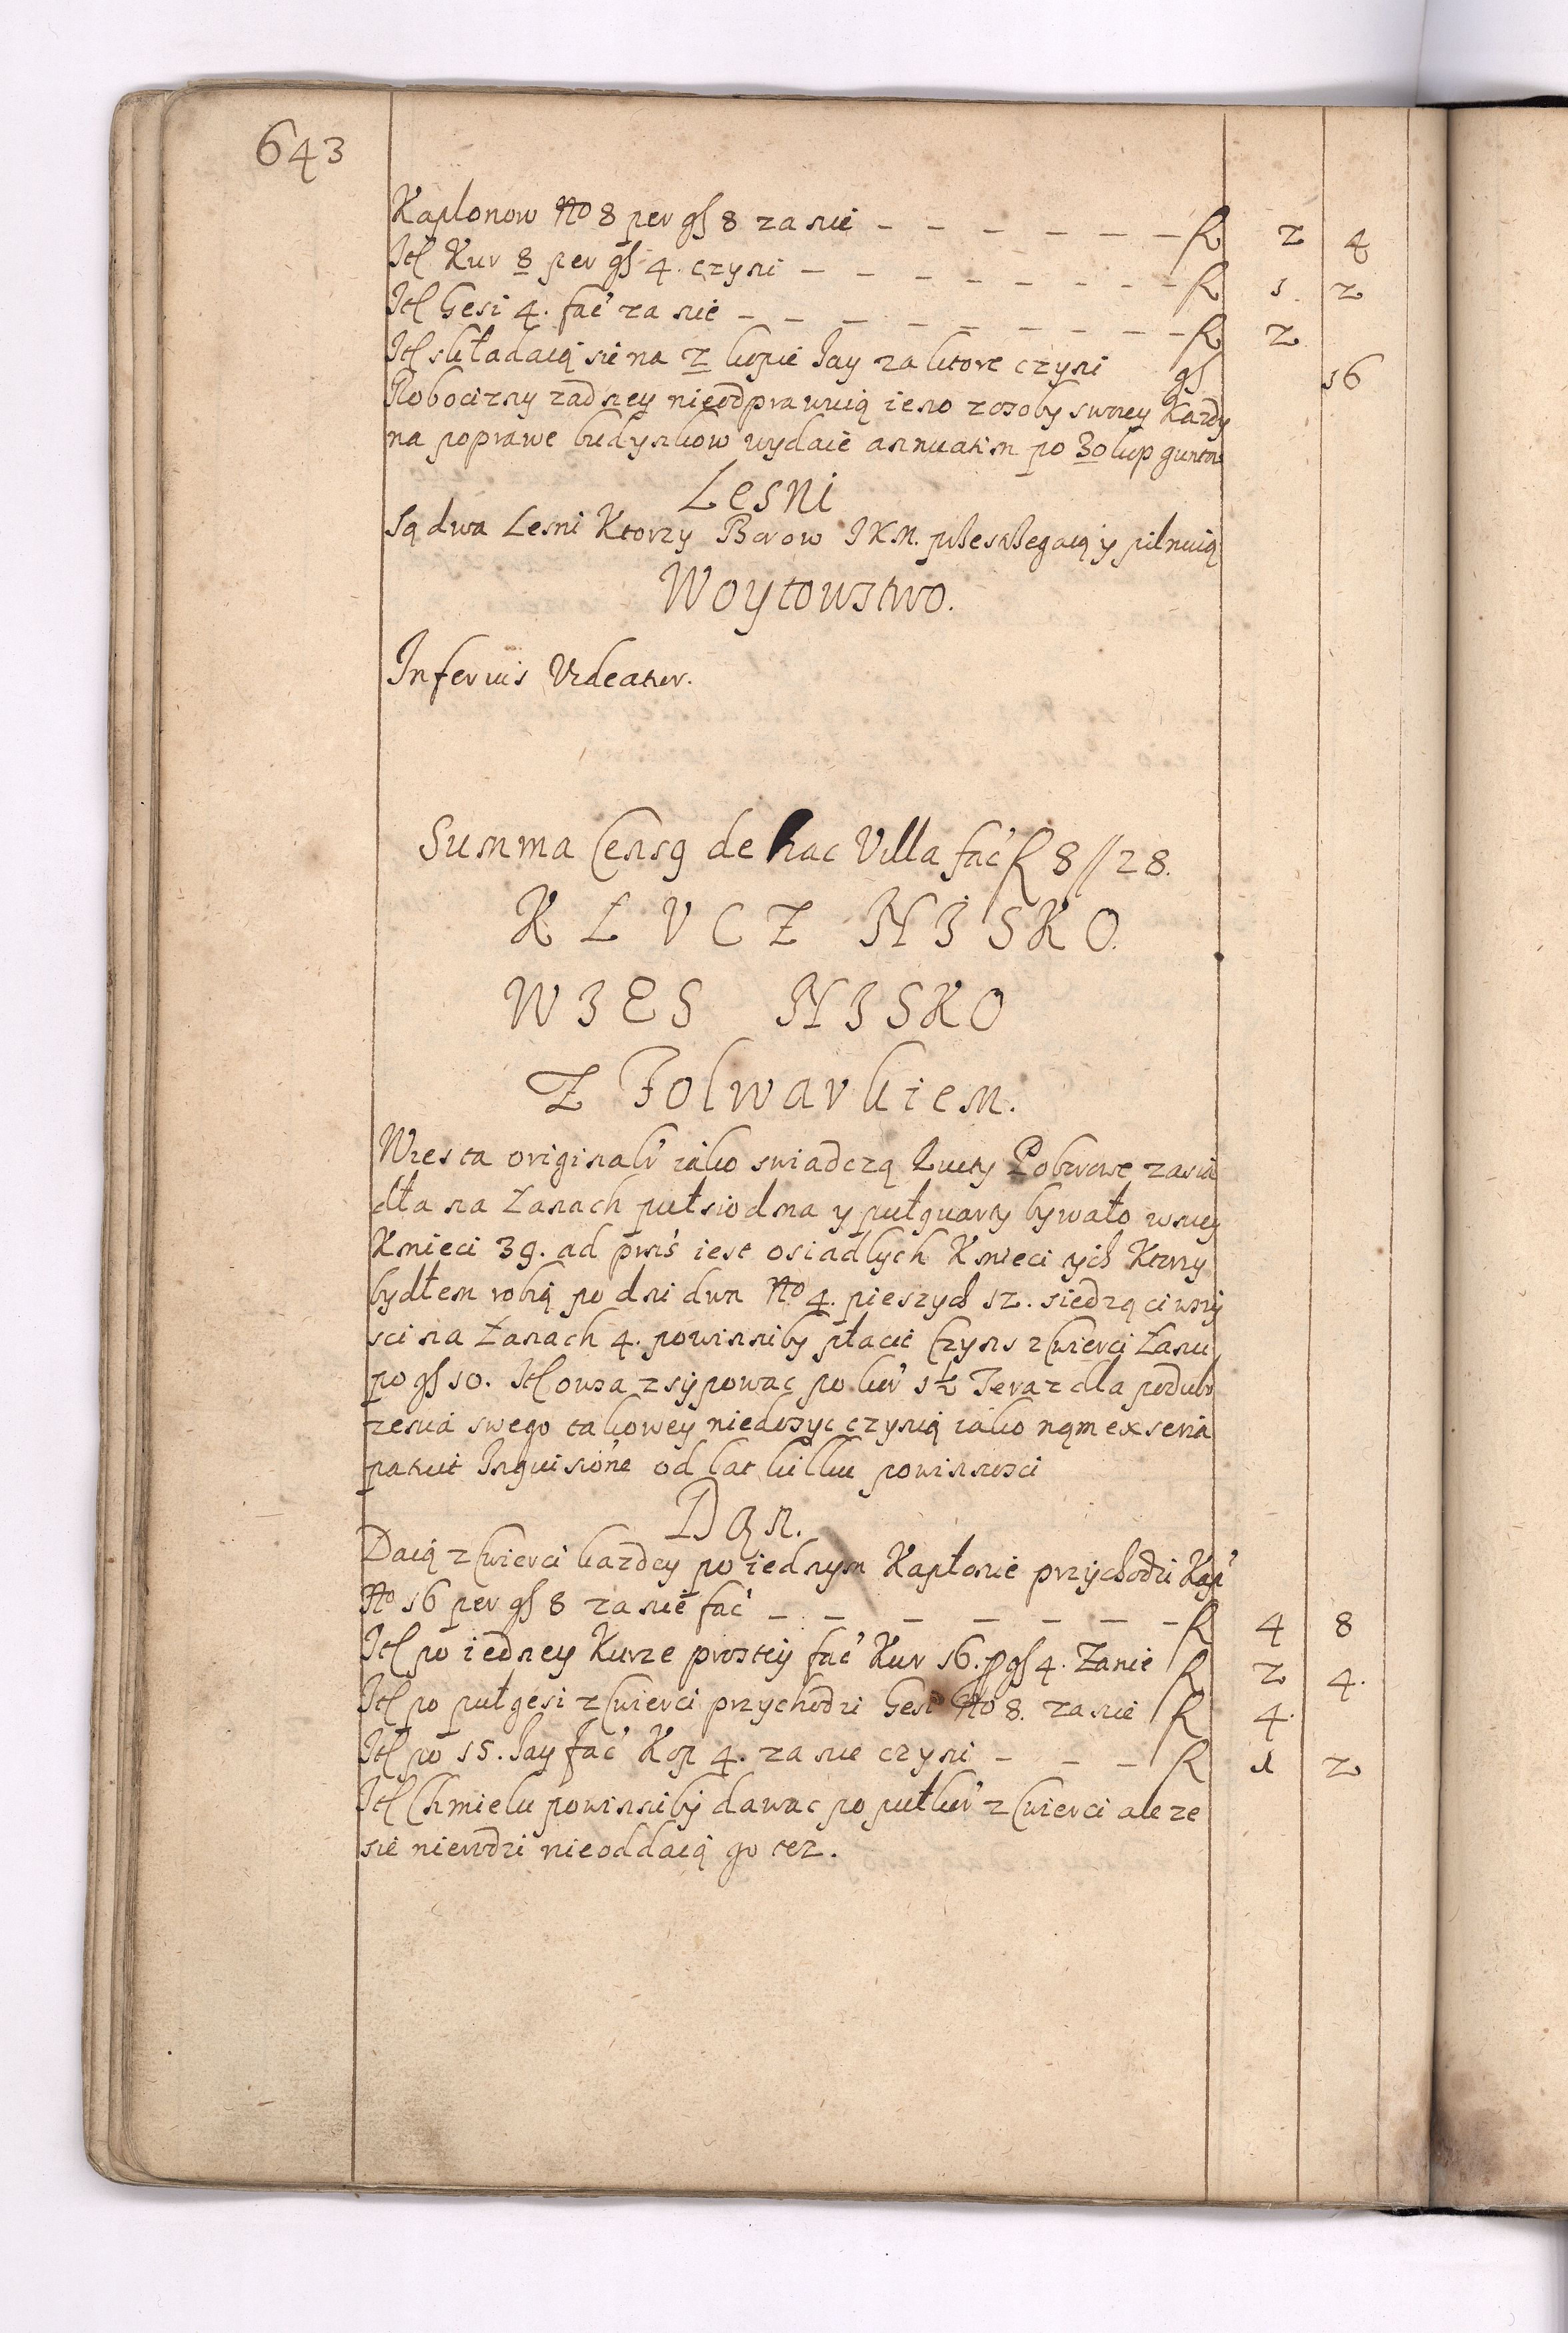 643
Kapłonow No 8 per gſ 8 za nie – – – – – – fl 2 4
Itl Kur 8 per gſ 4. czyni – – – – – – – fl 1. 2
Itl Gesi 4. fać za nie – – – – – – – – fl 2
Itl składaią sie na 2 kopie Iay za ktore czyni gſ 16
Robocizny zadney nieodprawuią ieno z osoby swoiey Kazdy
na poprawe budynkow wydaie annuatim po 30 kop guntow
Lesni
Są dwa Lesni Ktorzy Borow IKM. przestrzegaią y pilnuią
Woytowstwo.
Inferius Videatur.
Summa Censg de hac Villa fać fl 8 // 28.
KLVCZ NISKO.
WIES NISKO
Z Folwarkiem.
Wies ta originalr iako swiadczą kwity Poborowe zasia
dła na Łanach pułsiodma y pułquarty bywało w niey
Kmieci 39. ad pnś iest osiadlych Kmieci tych Ktorzy
bydłem robią po dni dwa No 4. pieszych 12. siedzą ci wszy
sci na Łanach 4. powinniby płacic Czyns z Cwierci Łanu
po gſ 10. Itl owsa zsypowac po kor 1½ Teraz dla podubo
zenia swego takowey niedosyc czynią iako nąm ex seria
patuit Inquisióne od lat kilku powinnosci
Dąn.
Daią z Cwierci kazdey po iednym Kapłonie przychodzi Kap'
No 16 per gſ 8 za nie fać – – – – – – – fl 4 8
Itl po iedney Kurze prostey fać Kur 16. p gſ 4. Zanie fl 2 4.
Itl po puł gesi z Cwierci przychodzi Gesi No 8. za nie fl 4.
Itl po 15. Iay fać Kop 4. za nie czyni – – – fl 1 2
Itl Chmielu powinniby dawac po puł kor' z Cwierci ale ze
sie nierodzi nieoddaią go tez.